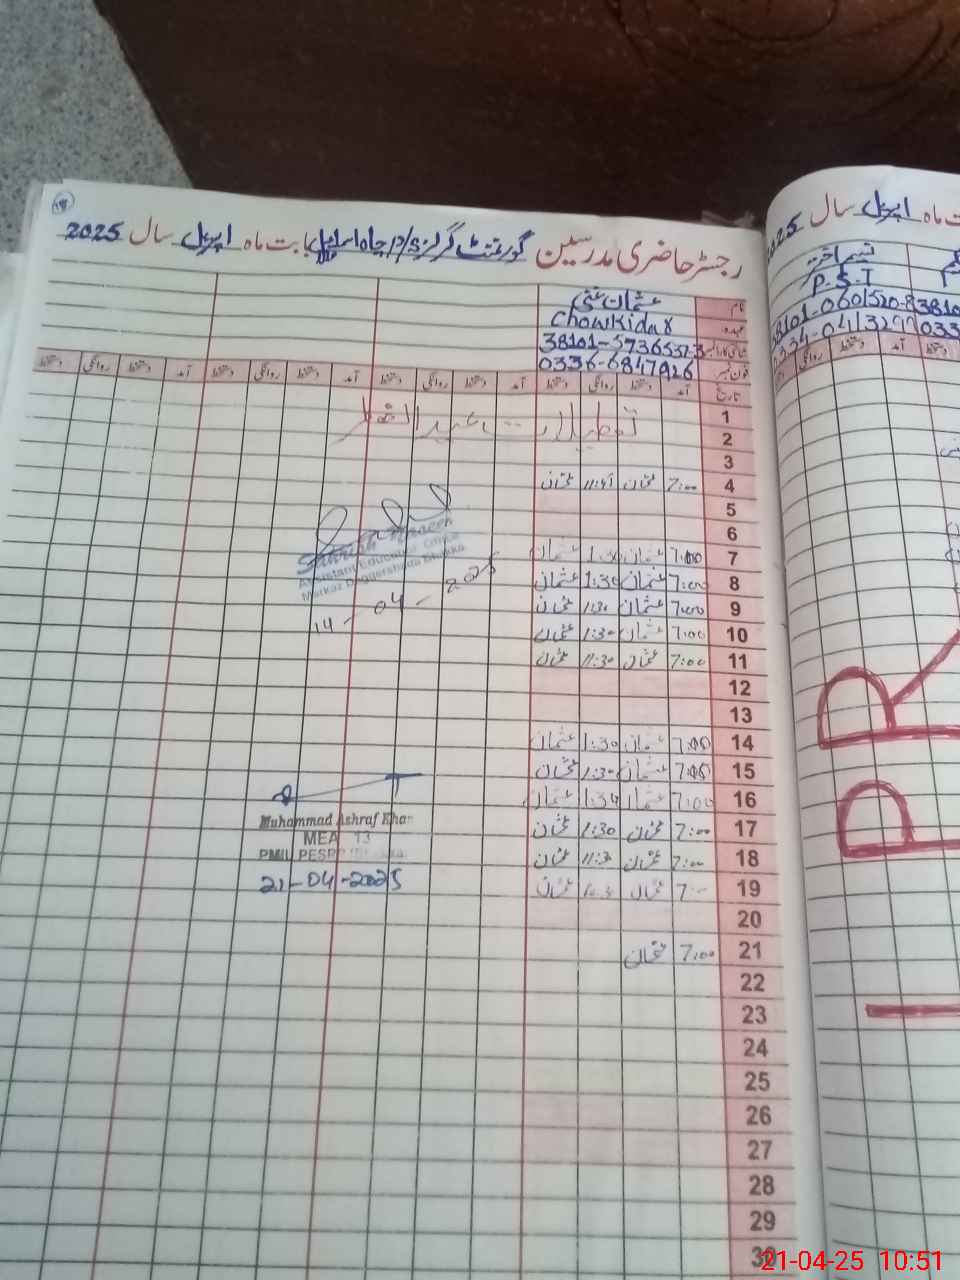 رجسٹر حاضری مدرسین گورنمنٹ گرلز P/S چاہ اسماعیل بابت ماہ اپریل سال 2025
نام عثمان غنی
عہدہ Chowkidar
38101-5736537-3
فون نمبر 0336-6847926
تاریخ آمد دستخط روانگی دستخط آمد دستخط روانگی دستخط آمد دستخط روانگی دستخط آمد دستخط روانگی دستخط
1 تعطیلات عید الفطر
2
3
4 7:00 عثمان 11:41 عثمان
5
6
7 7:00 عثمان 1:30 عثمان
8 7:00 عثمان 1:30 عثمان
9 7:00 عثمان 1:30 عثمان
10 7:00 عثمان 1:30 عثمان
11 7:00 عثمان 11:30 عثمان
12
13
14 7:00 عثمان 1:30 عثمان
15 7:00 عثمان 1:30 عثمان
16 7:00 عثمان 1:30 عثمان
17 7:00 عثمان 1:30 عثمان
18 7:00 عثمان 11:3 عثمان
19 7:- عثمان عثمان
20
21 7:00 عثمان
22
23
24
25
26
27
28
29
30
Assistant Education Officer
Markaz
14-04-2025
Muhammad Ashraf Khan
MEA 13
PMIU PESRP
21-04-2025
ماہ اپریل سال 2025
نسیم اختر
P.S.T
38101-0601520-8
0334-0413297
آمد دستخط روانگی
P R
21-04-25 10:51